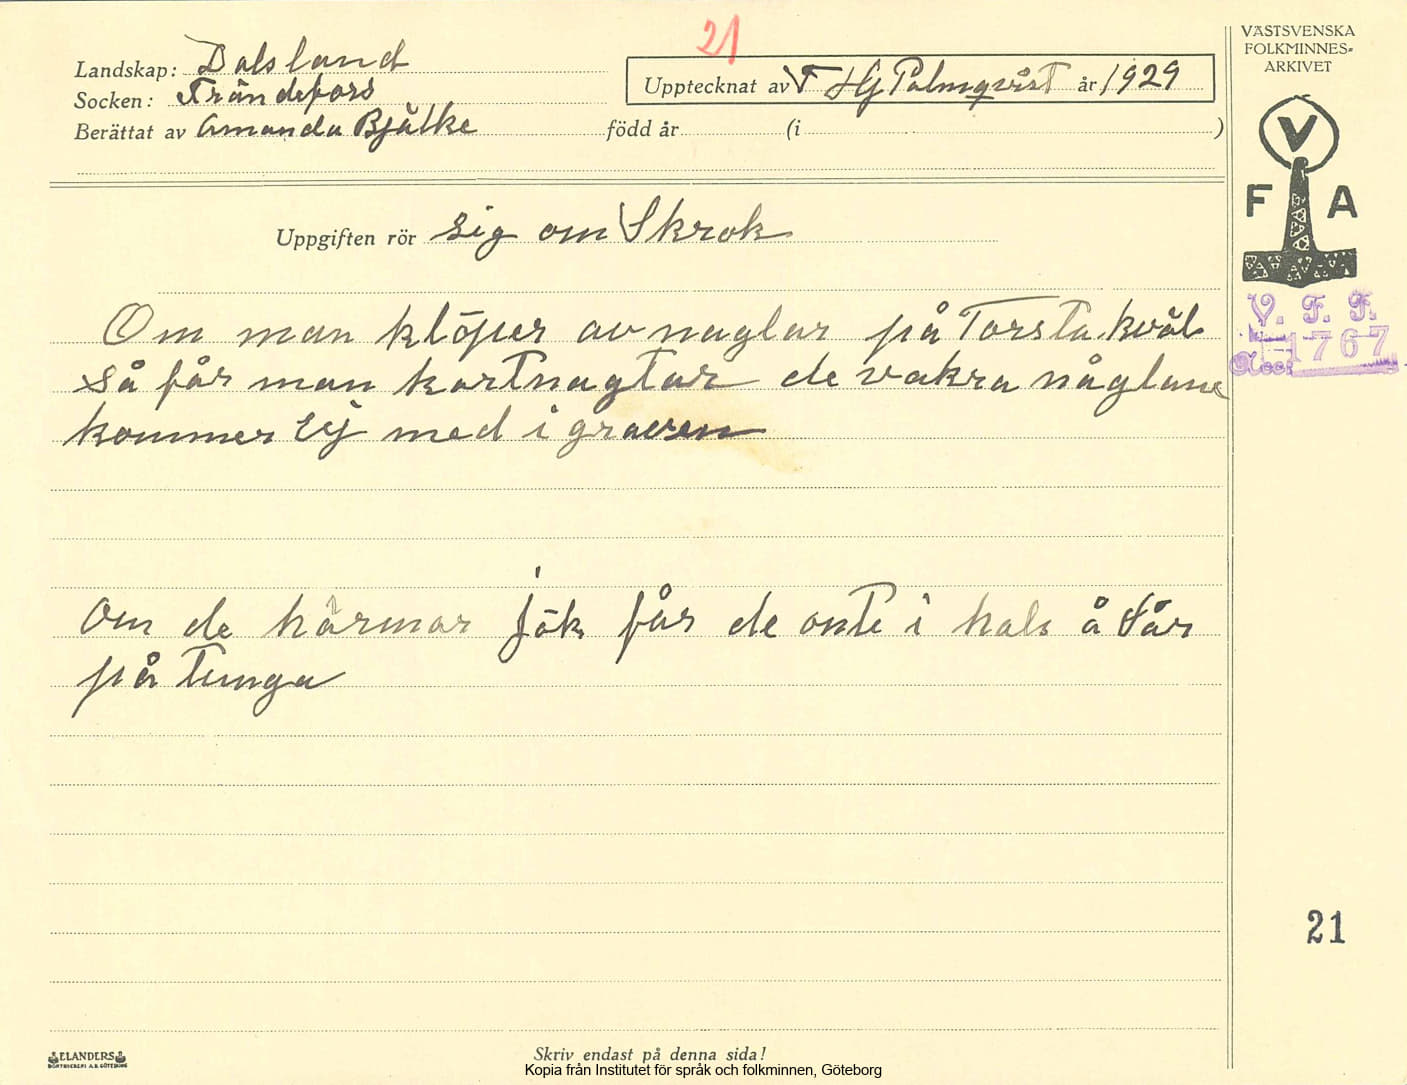 21
Landskap: Dalsland
Socken: Frändefors
Berättat av Amanda Bjälke född år (i )
Upptecknat av F Hj Palmqvist år 1929
VÄSTSVENSKA
FOLKMINNES-
ARKIVET
V
F A
Uppgiften rör sig om Skrok
V. F. F.
1767
Om man klöper av naglar på Torsta kväl
Så får man kortnaglar de vakra någlane
kommer Ej med i graven
Om de härmar jök får de onte i hals å Sår
på tunga
21
ELANDERS
BOKTRYCKERI A.B. GÖTEBORG
Skriv endast på denna sida!
Kopia från Institutet för språk och folkminnen, Göteborg